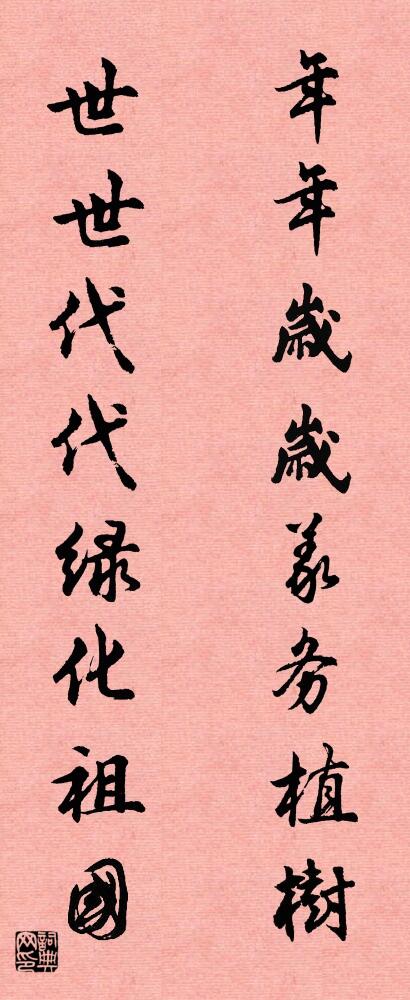 年年歲歲義务植樹
世世代代绿化祖國
詞典网印